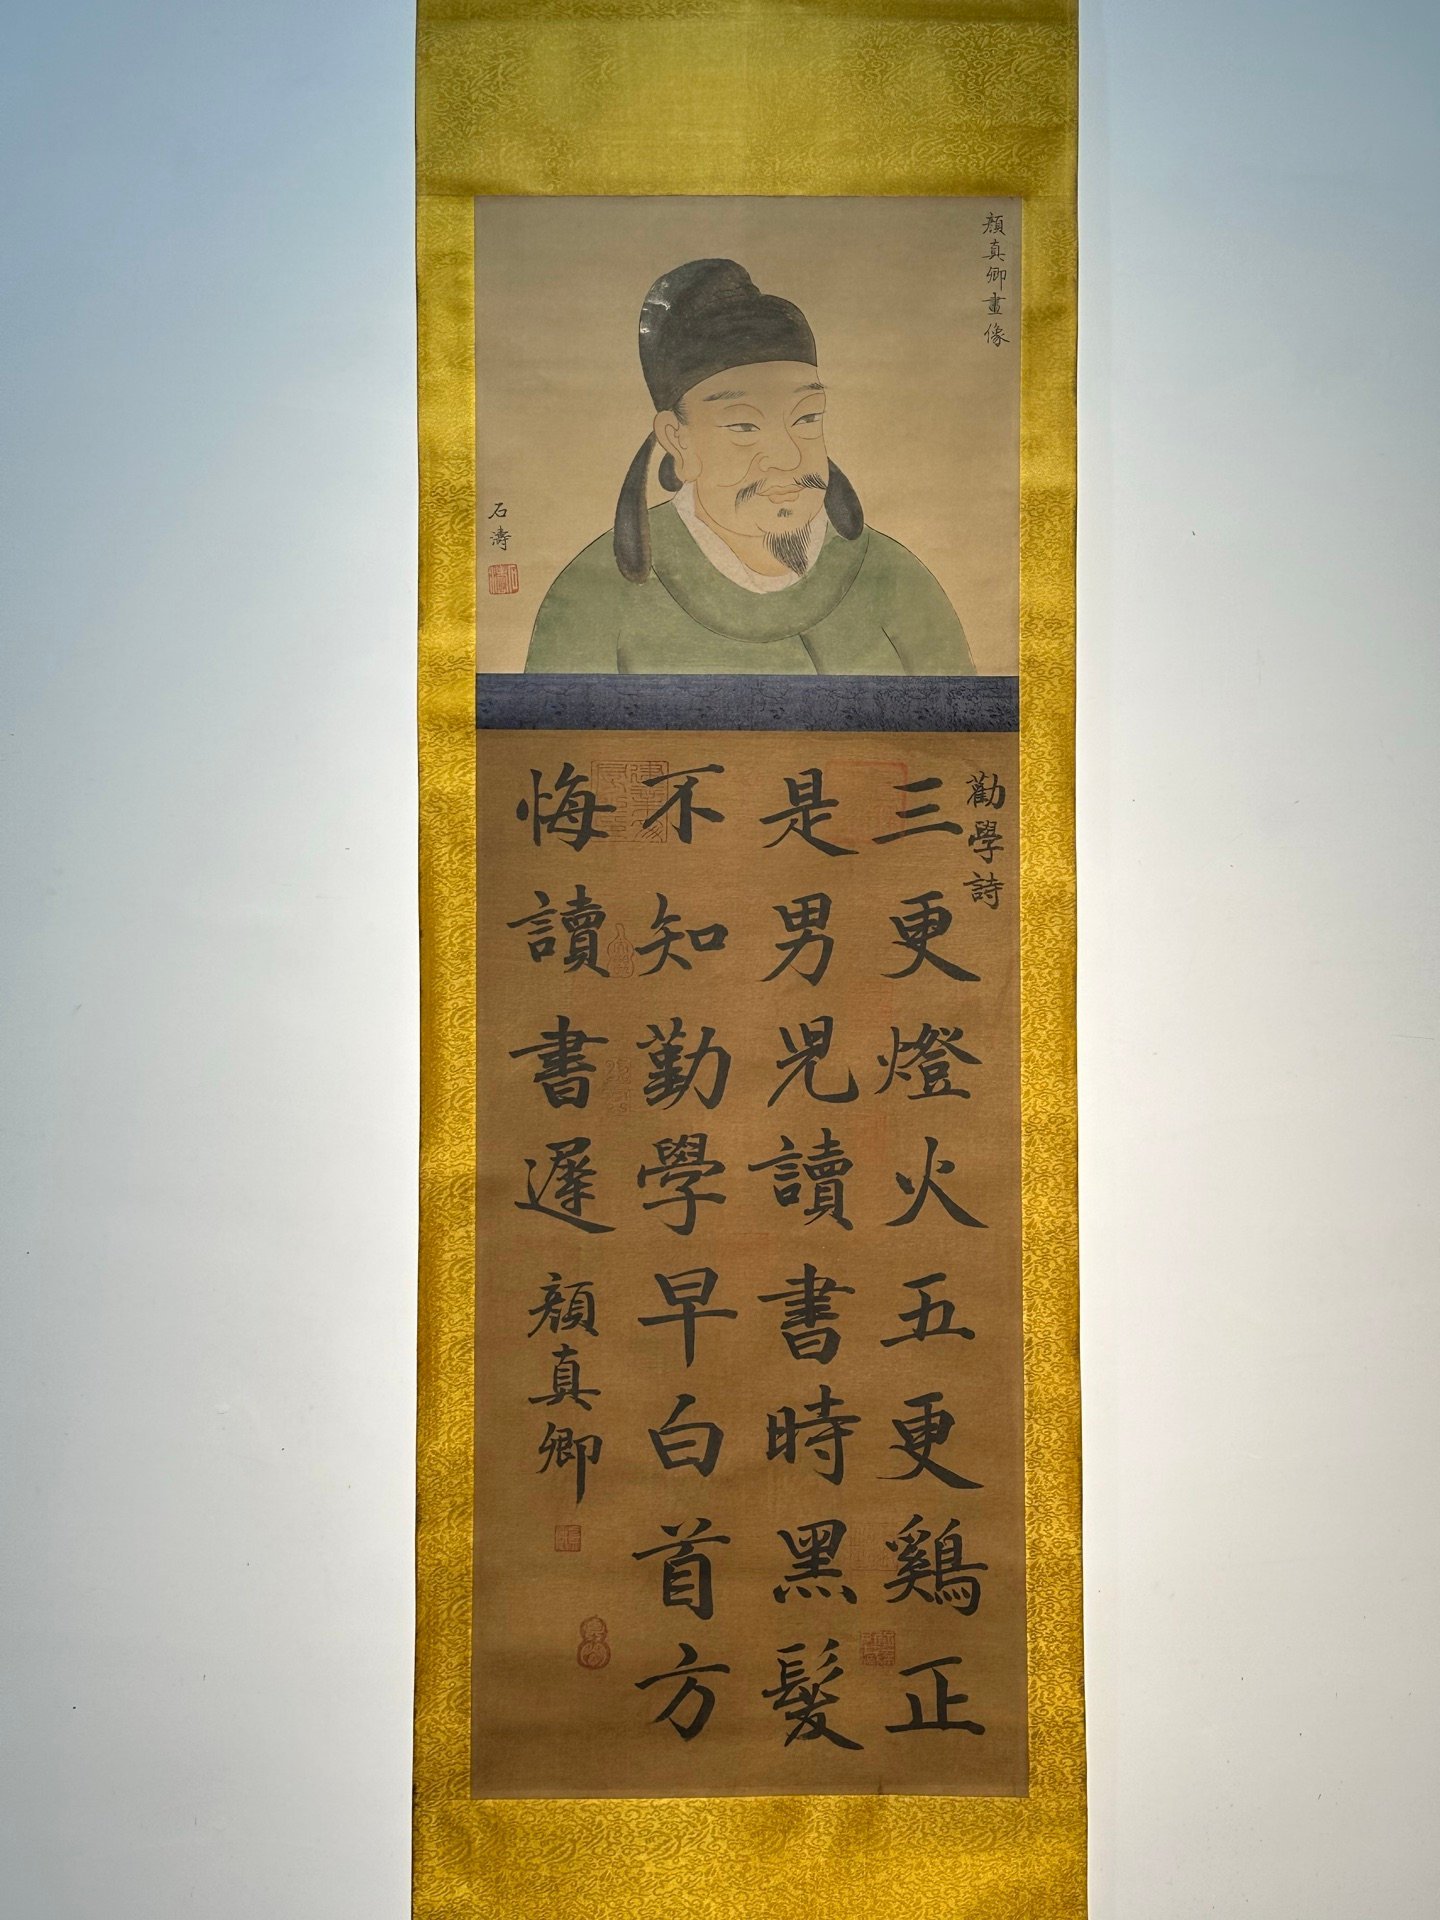 顏真卿畫像
石濤
勸學詩
三更燈火五更鷄正
是男児讀書時黑髮
不知勤學早白首方
悔讀書遲
顏真卿